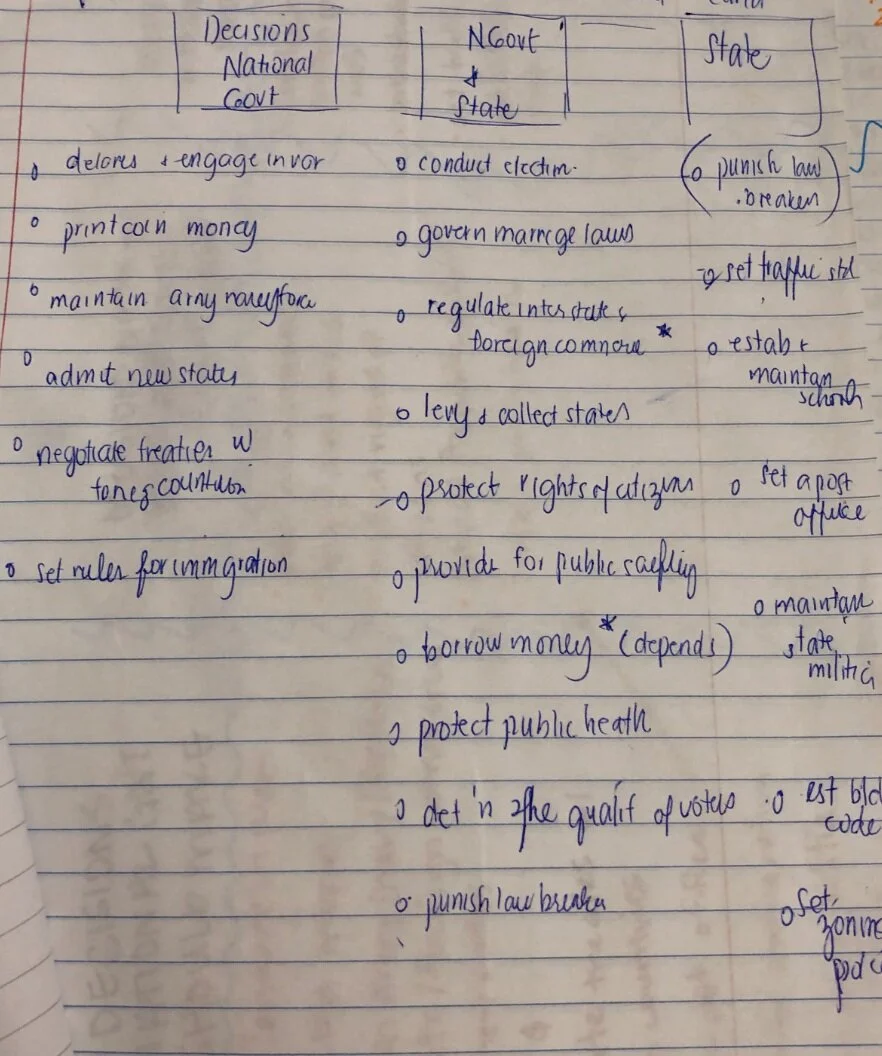 Decisions
National
Govt
NGovt
&
State
State
delares & engage in war
print coin money
maintain army navey force
admit new states
negotiate treaties w
set rules for immgration
conduct election.
govern marrege laws
regulate interstate &
foreign commerce *
levy & collect states
protect rights of citizens
provide for public
borrow money * (depends)
protect public heath
det'n the qualif of voters
punish law breaker
(punish law
breakers)
set traffic std
estab &
maintan
schools
set a post
office
maintan
state
militia
est bld
code
set